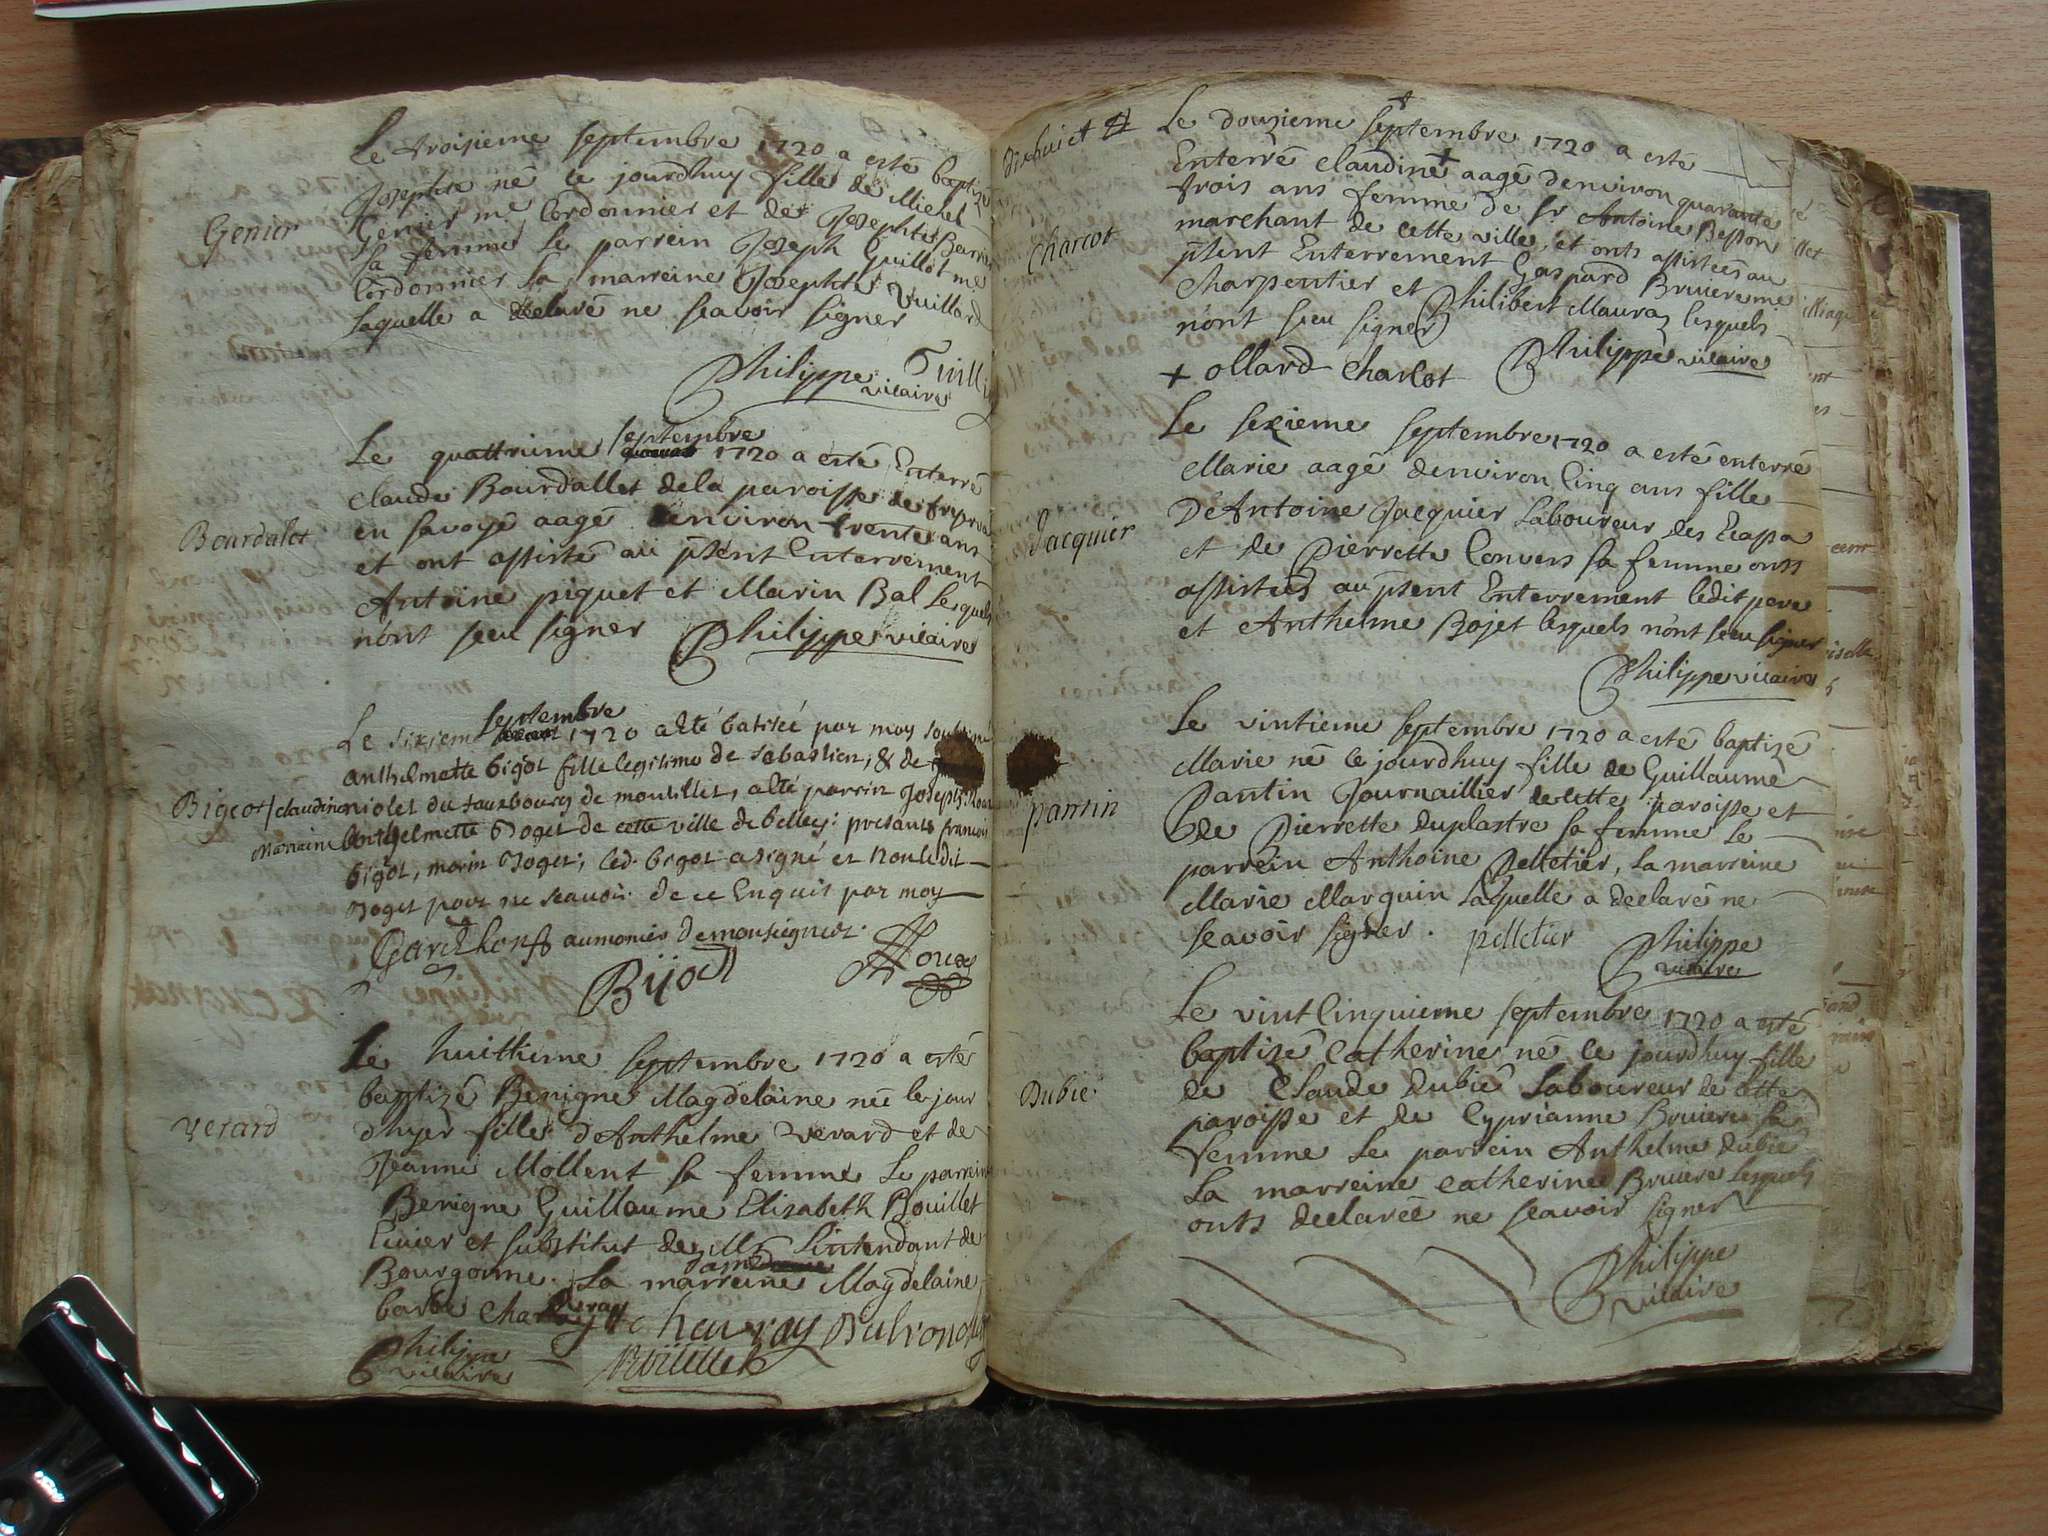 Le troisieme septembre 1720 a esté baptizé
Josephte né ce jourdhuy fille de Michel
Genier
Genier me Cordonnier et de Josephte
sa femme le parrein Joseph Guillot me
Cordonnier la marreine Josephte Vuillard
laquelle a declaré ne scavoir signer
Philippe
vicaire
Le quattrieme septembre 1720 a esté Enterré
Claude Bourdallet de la paroisse de
Bourdalet
en savoye aagé denviron trente ans
et ont assisté au pñt Enterrement
Antoine piquet et Marin Bal lesquels
n'ont sceu signer Philippe vicaire
Le sixieme septembre 1720 a été batisée par moy
anthelmette bigot fille legitime de sebastien, & de
Bigeot / claudine violet du fauxbourg de
Marraine anthelmette Boget de cette ville de belley: presants francois
bigot, marin Boget; led. bigot a signé et non ledit
Boget pour ne scavoir de ce Enquis par moy
aumonier de monseigneur.
Bijot
Le huittieme septembre 1720 a esté
baptizé Benigne Magdelaine née le jour
verard
dhyer fille d'Anthelme Verard et de
Jeanne Mollent sa femme Le parrein
Benigne Guillaume Elisabeth Bouillet
et substitut de Mr Lintendant de
Bourgonne. La marreine Magdelaine
barbe
Philippe
vicaire
Le douzieme septembre 1720 a esté
Enterré claudine + aagé denviron quarante
trois ans femme de sr Antoine Besson
Charcot
marchant de cette ville, et onts assistées au
pñt Enterrement Gaspard Bruiere me
Charpentier et Philibert Mauraz lesquels
n'ont sceu signer
+ ollard charcot Philippe vicaire
Le sezieme septembre 1720 a esté enterré
Marie aagé denviron Cinq ans fille
Jacquier
D'Antoine Jacquier Laboureur des Ecapa
et de Pierrette Convers sa femme onts
assistées au pñt Enterrement ledit pere
et Anthelme Bojet lesquels n'ont sceu signer
Philippe vicaire
Le vintieme septembre 1720 a esté baptizé
Marie né le jourdhuy fille de Guillaume
pantin
Pantin Journaillier de cette paroisse et
de Pierrette Duplastre sa femme Le
parrein Anthoine Pelletier, La marreine
Marie Marquin Laquelle a declaré ne
scavoir signer. pelletier Philippe
vicaire
Le vint Cinquieme septembre 1720 a esté
baptizé Catherine né ce jourdhuy fille
Dubié
de Claude Dubié Laboureur de cette
paroisse et de Cyprianne Bruiere sa
femme Le parrein Anthelme Dubié
La marreine Catherine Bruiere Lesquels
onts declareé ne scavoir signer
Philippe
vicaire